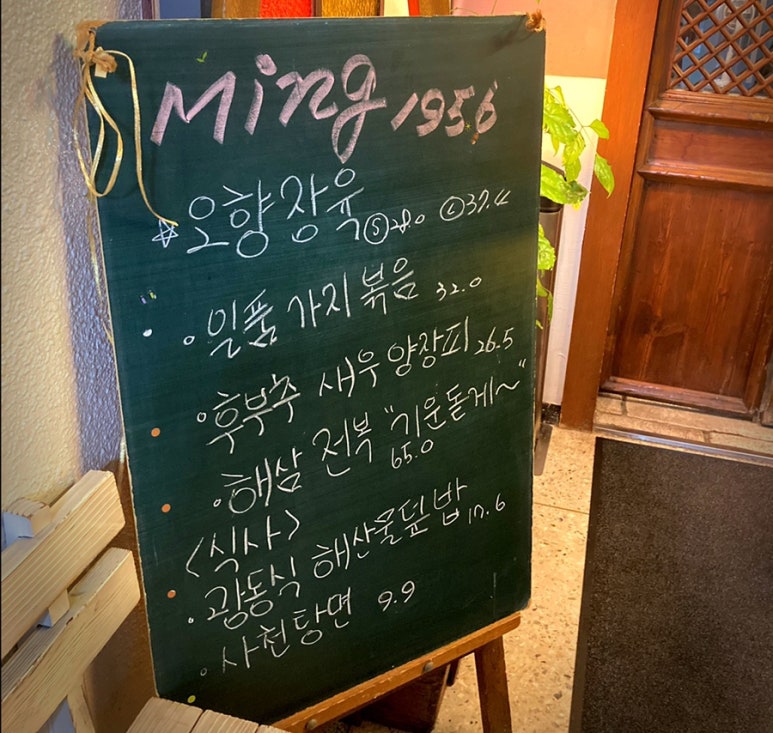 Ming 1956
☆오향장육 Ⓢ28.0 Ⓛ37.4
· 일품 가지볶음 32.0
· 후부추 새우 양장피 26.5
· 해삼 전복 "기운돋게~"
65.0
<식사>
· 광동식 해산물덮밥 17.6
· 사천탕면 9.9